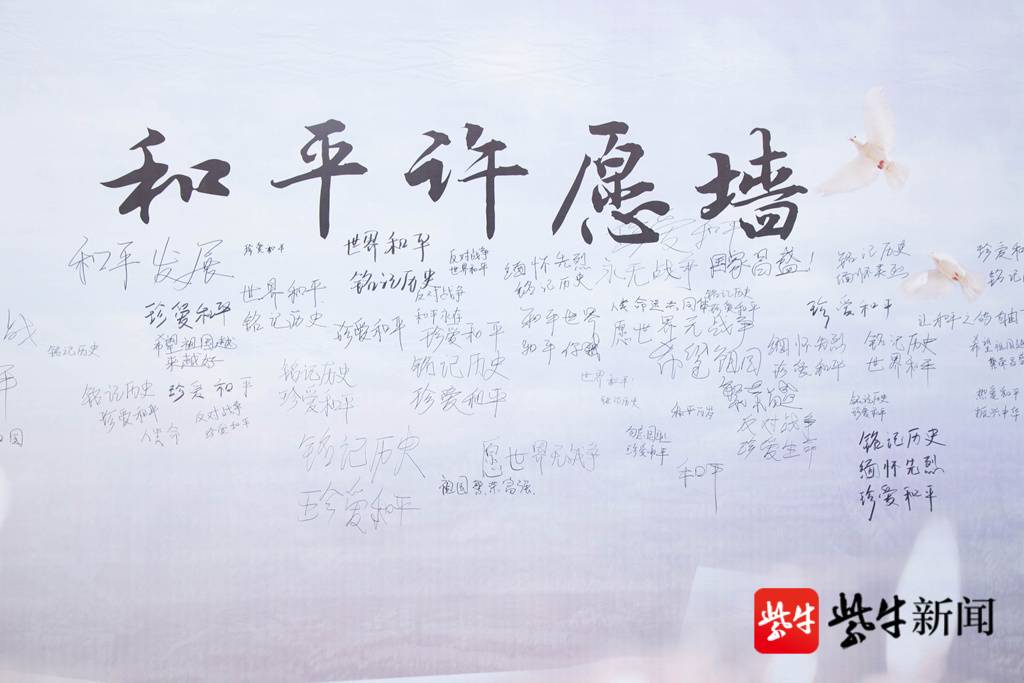 和平许愿墙
珍爱和平
和平发展
珍爱和平
世界和平
反对战争
世界和平
缅怀先烈
铭记历史
永无战争
国家昌盛！
铭记历史
缅怀先烈
铭记历史
珍爱和平
希望祖国越
来越好
世界和平
铭记历史
铭记历史
反对战争
和平永在
珍爱和平
珍爱和平
和平世界
和平
人类命运共同体
铭记历史
珍爱和平
愿世界无战争
希望祖国
繁荣昌盛
珍爱和平
战
铭记历史
铭记历史
珍爱和平
珍爱和平
反对战争
珍爱和平
铭记历史
珍爱和平
铭记历史
珍爱和平
世界和平!
铭记历史
缅怀先烈
珍爱和平
铭记历史
世界和平
铭记历史
珍爱和平
热爱和平
振兴中华
反对战争
珍爱生命
勿忘国耻
珍爱和平
铭记历史
珍爱和平
愿世界无战争
祖国繁荣富强
和平
铭记历史
缅怀先烈
珍爱和平
紫牛 紫牛新闻